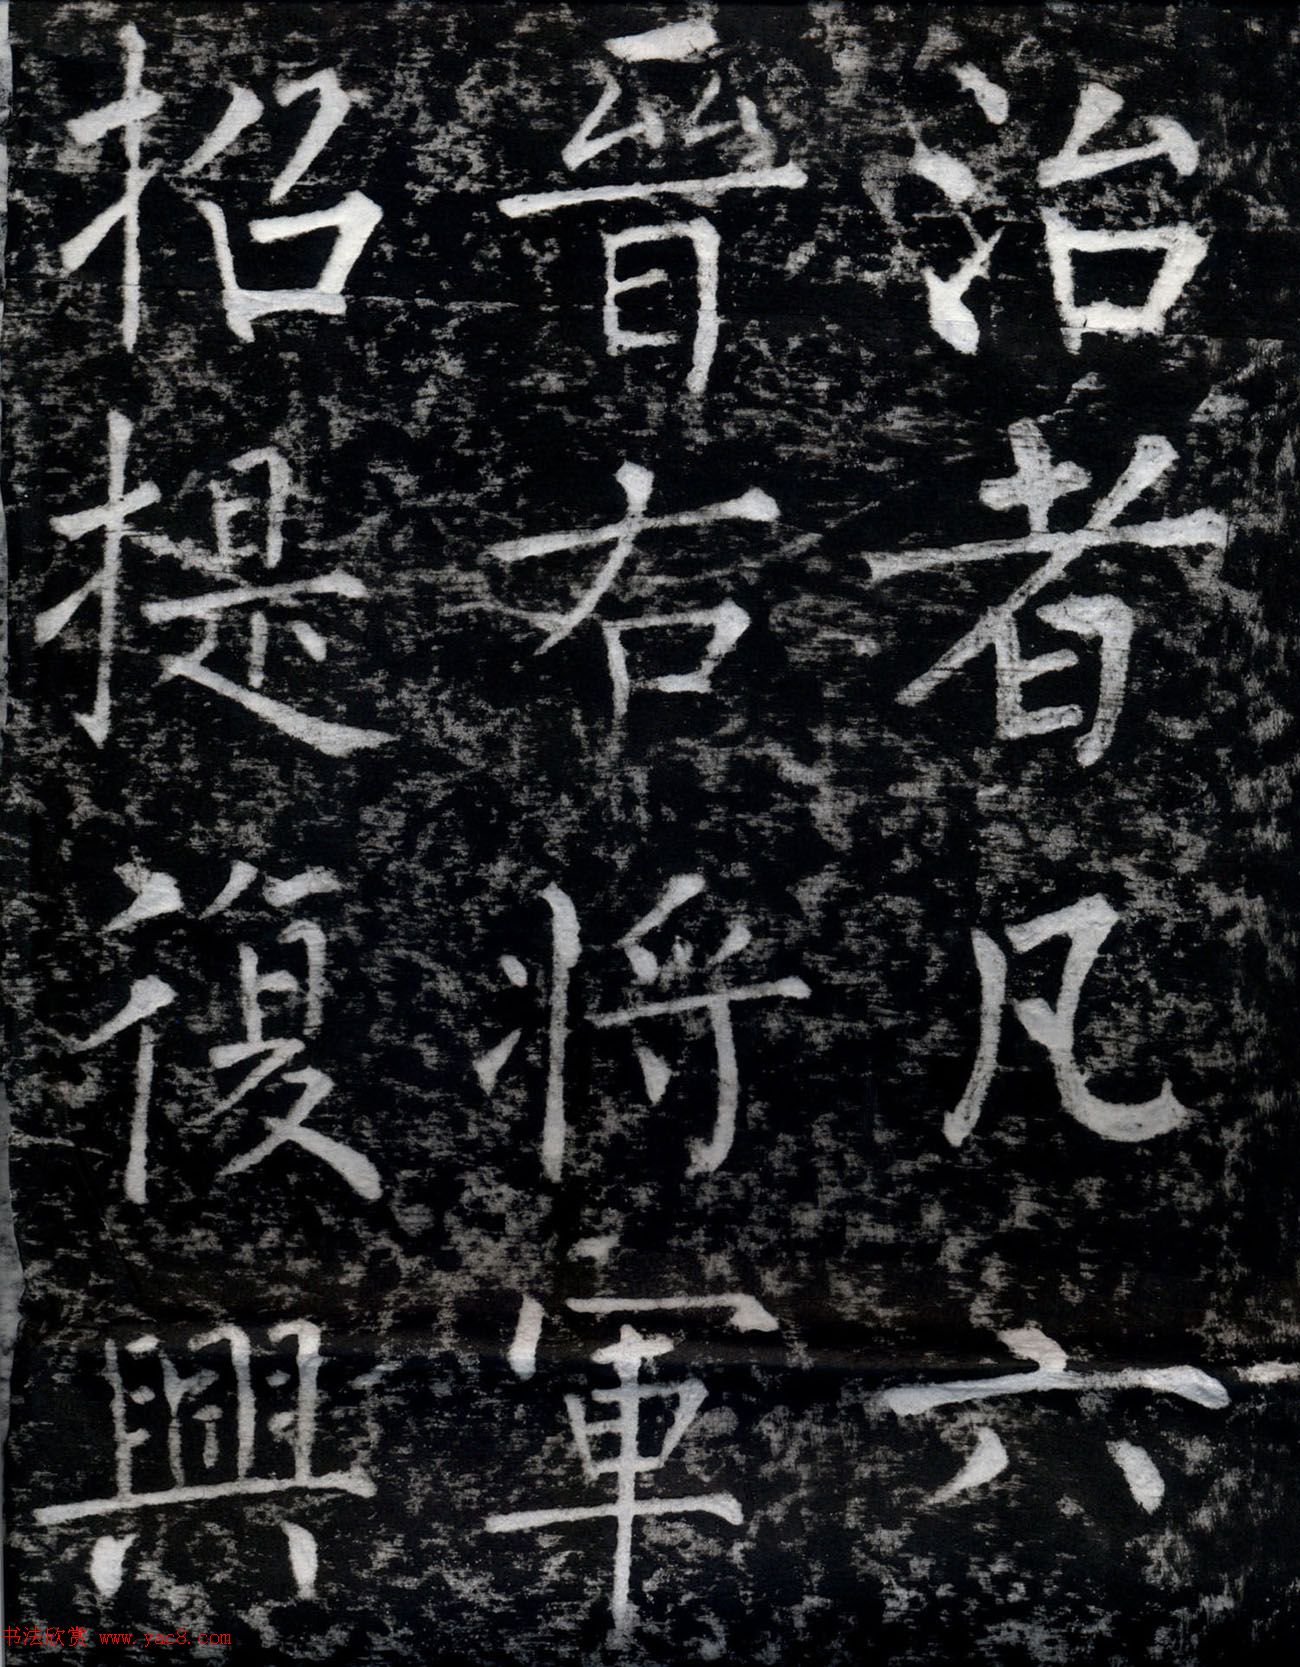 治者凡六
晉右將軍
招提復興
书法欣赏 www.yac8.com